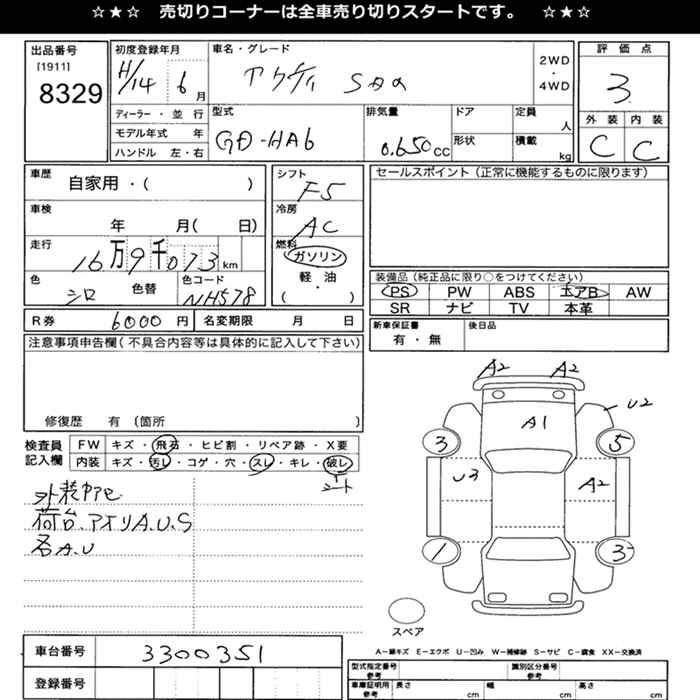 ☆★☆ 売切りコーナーは全車売り切りスタートです。 ☆★☆
出品番号
[1911]
8329
初度登録年月
H/14 6月
車名・グレード
アクティ SDX
2WD
・
4WD
評価点
3
外装 内装
C C
ディーラー・並行
モデル年式 年
ハンドル 左・右
型式
GD-HA6
排気量
0.650CC
ドア
形状
定員
人
積載
kg
車歴
自家用・( )
車検
年 月( 日)
走行
16万9千073km
色
シロ
色替
色コード
NH578
シフト
F5
冷房
AC
燃料
ガソリン
軽・油
( ・ )
セールスポイント(正常に機能するものに限ります)
装備品(純正品に限り○をつけてください)
PS PW ABS エアB AW
SR ナビ TV 本革
R券 6000円 名変期限 月 日
新車保証書
有・無
後日品
注意事項申告欄(不具合内容等は具体的に記入して下さい)
修復歴 有(箇所 )
検査員
記入欄
FW キズ・飛石・ヒビ割・リペア跡・X要
内装 キズ・汚し・コゲ・穴・スレ・キレ・破レ
シート
荷台.アオリA.U.S
各A.U
A2 A2
U2
A1
3 5
U3 A2
1 3
スペア
車台番号 3300351
登録番号
A-線キズ E-エクボ U-凹み W-補修跡 S-サビ C-腐食 XX-交換済
型式指定番号
参考
識別区分番号
参考
車庫証明用
参考
長さ cm 幅 cm 高さ cm